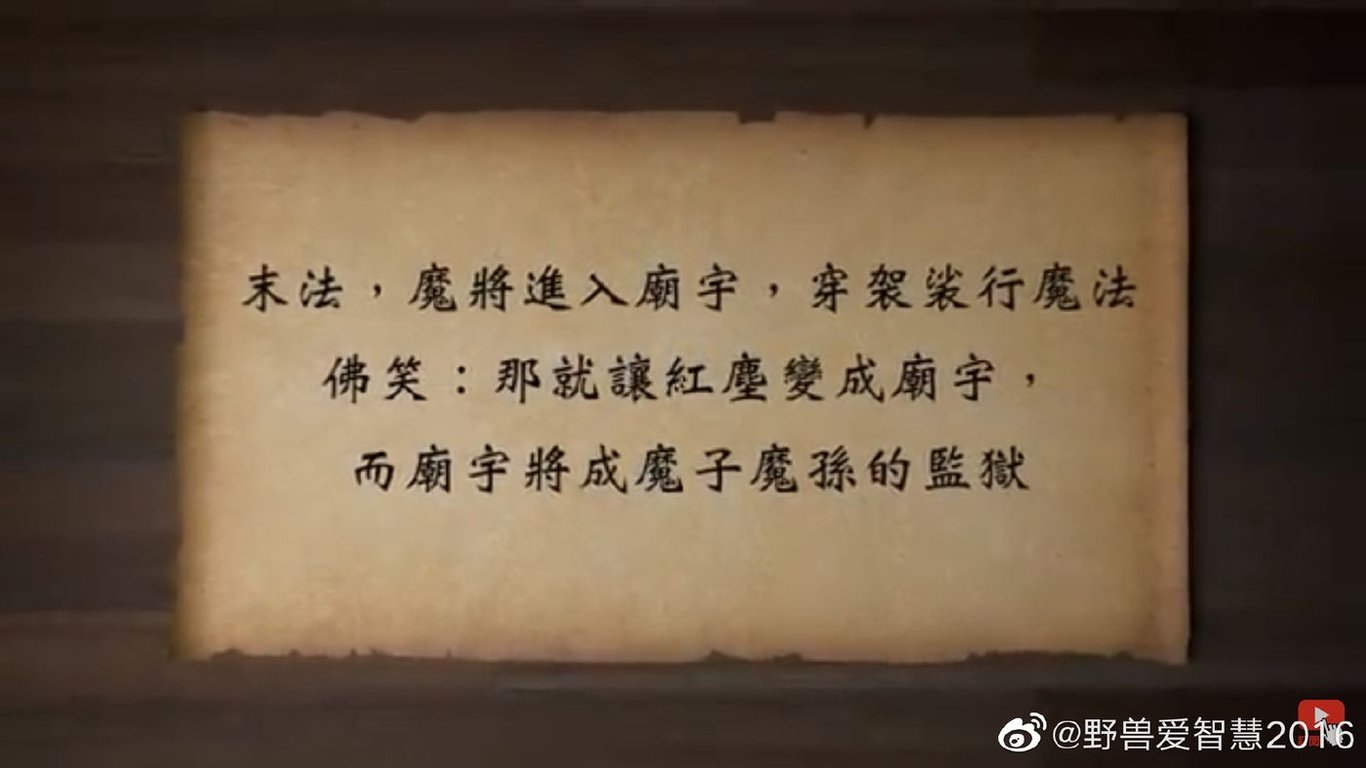 末法，魔將進入廟宇，穿袈裟行魔法
佛笑：那就讓紅塵變成廟宇，
而廟宇將成魔子魔孫的監獄
@野兽爱智慧2016